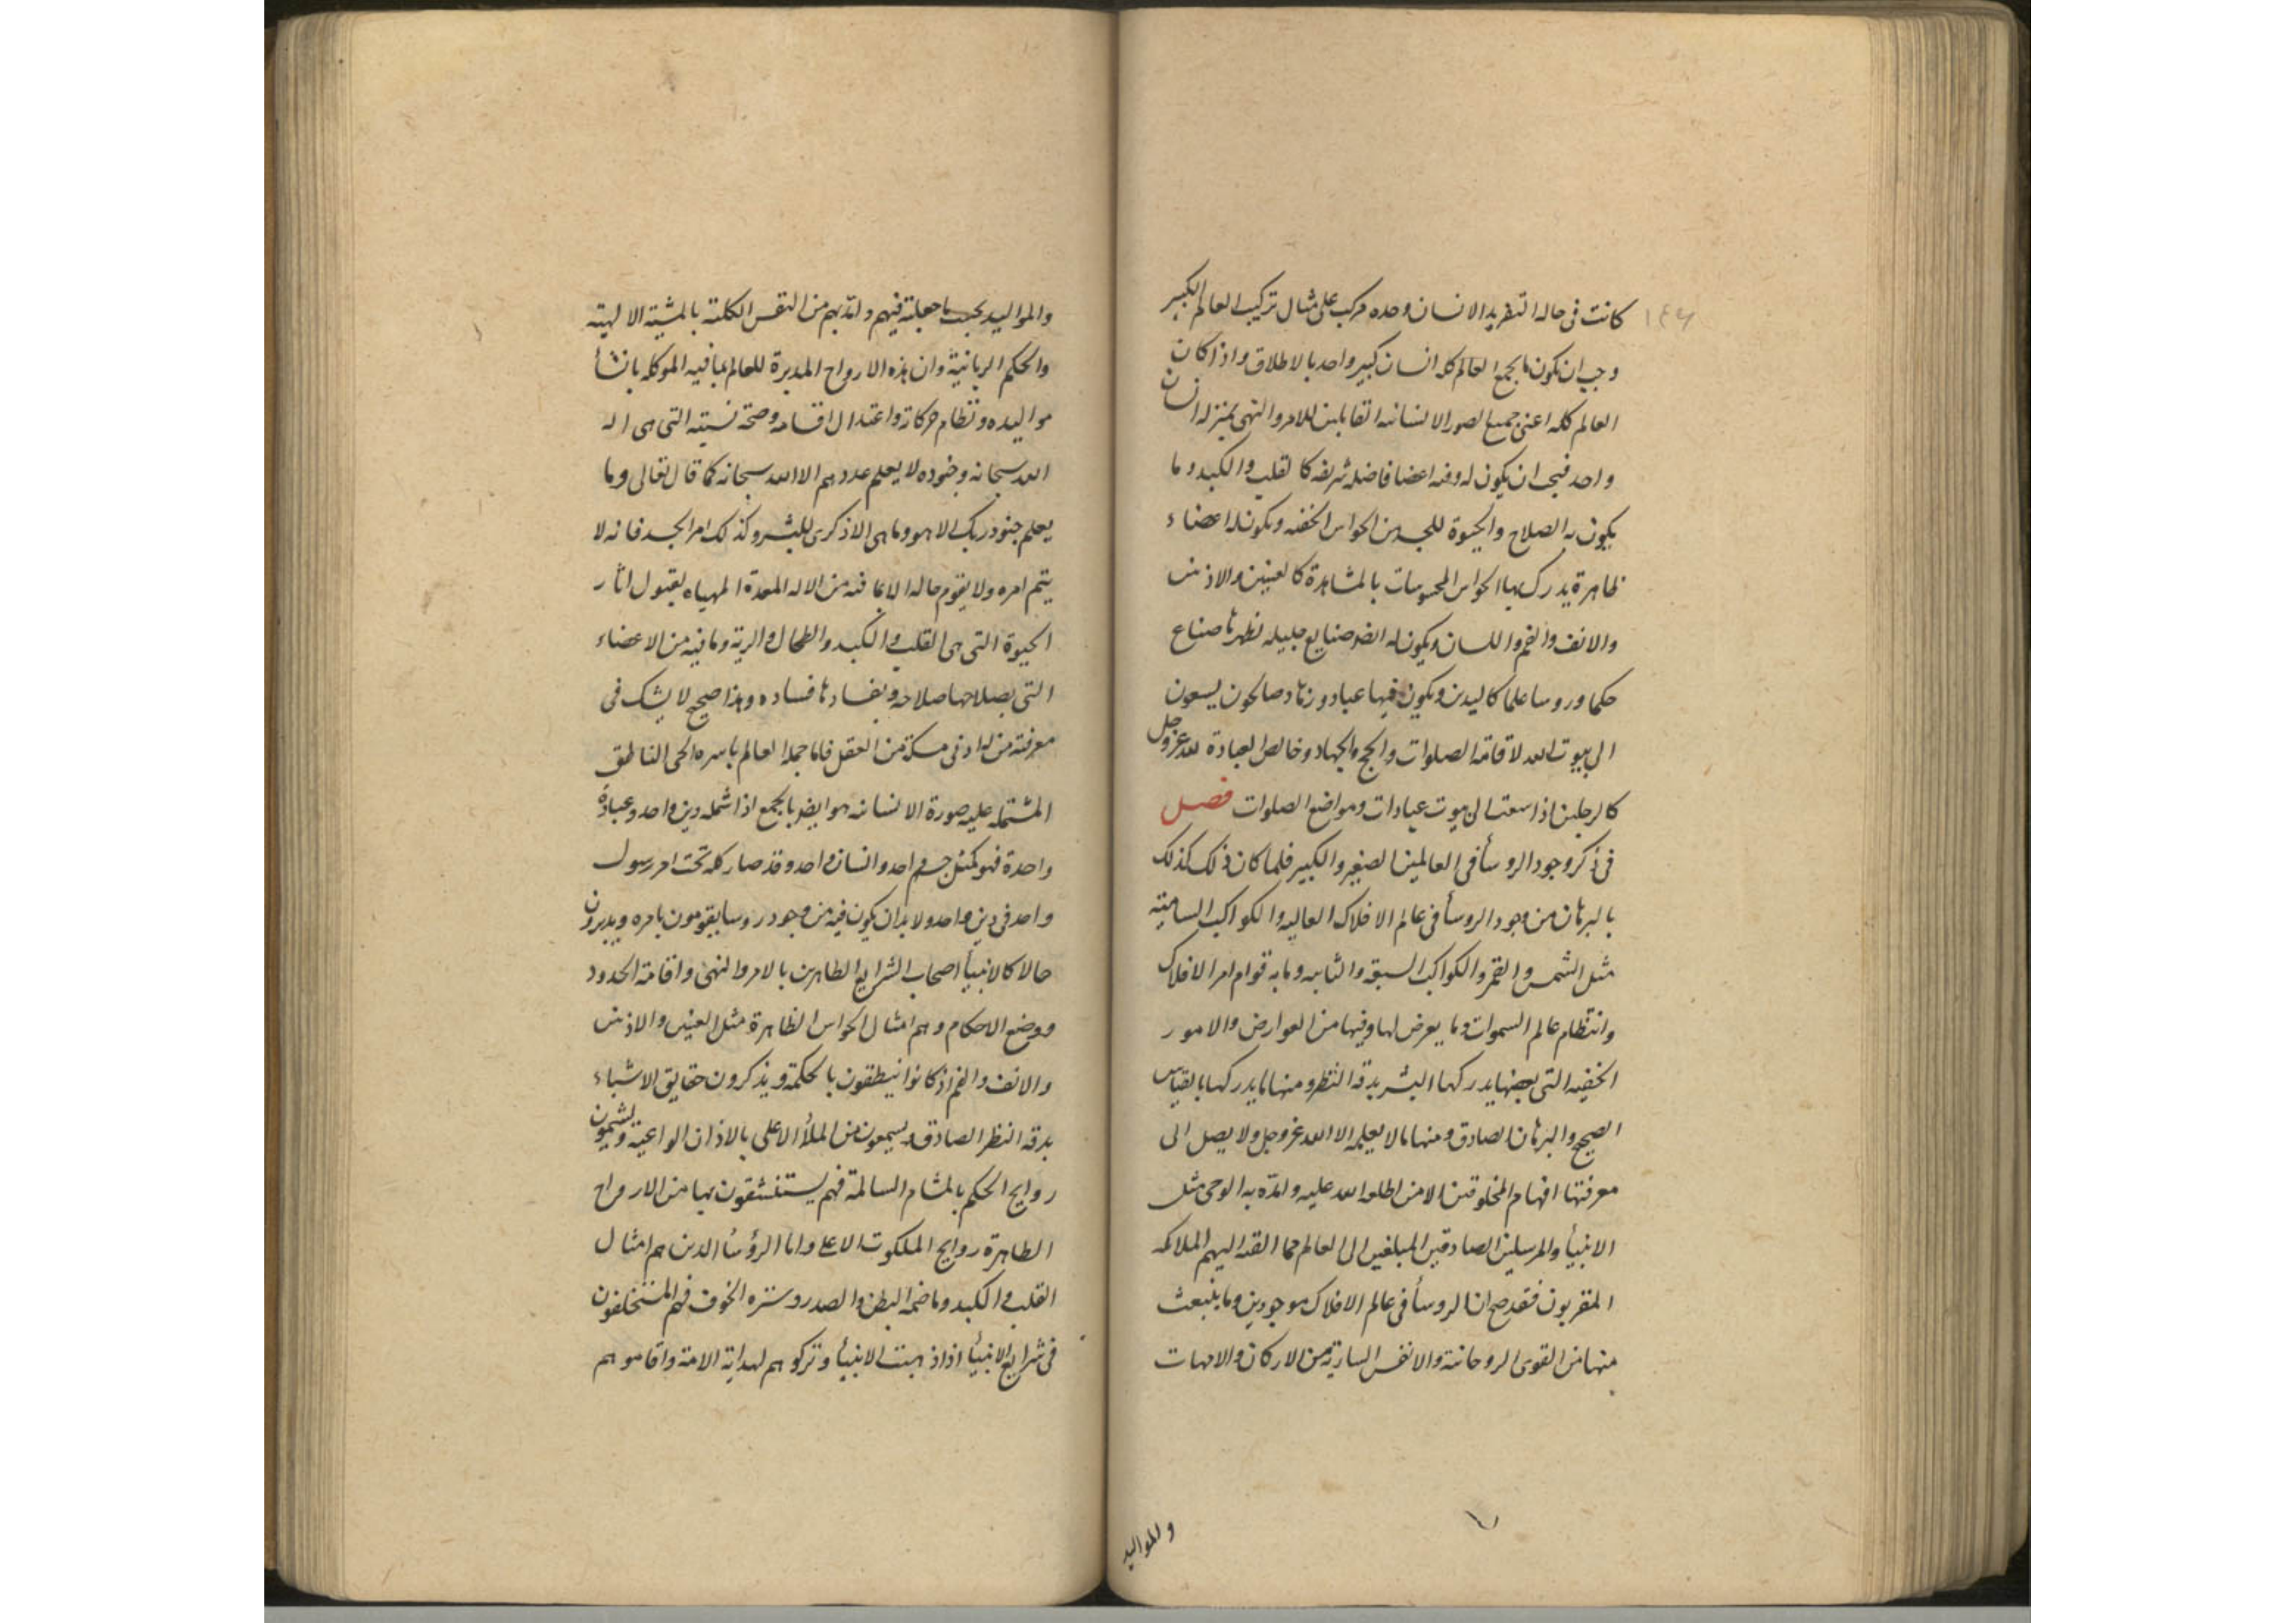 ١٤٦
كانت فى حاله التفريد الانسان وحده مركب على مثال تركيب العالم الكبير
وجب ان يكون بالجمع العالم كله انسان كبير واحد بالاطلاق واذا كان
العالم كله اعنى جميع الصور الانسانيه القابلين للامر والنهى بمنزله انسان
واحد فيجب ان يكون له وفيه اعضا فاضله شريفه كالقلب والكبد وما
يكون به الصلاح والحيوة للجسد من الحواس الخفيه ويكون له اعضاء
ظاهرة يدرك بها الحواس المحسوسات بالمشاهدة كالعينين والاذنين
والانف والفم واللسان ويكون له ايضا صنايع جليله نظهرها صناع
حكما وروسا علما كاليدين ويكون فيها عباد وزهاد وصالحون يسعون
الى بيوت الله لاقامة الصلوات والحج والجهاد وخالص العبادة لله عز وجل
كالرجلين اذا سعت الى بيوت عبادات ومواضع الصلوات فصل
فى ذكر وجود الروسأ فى العالمين الصغير والكبير فلما كان ذلك كذلك
بالبرهان من وجود الروسأ فى عالم الافلاك العاليه والكواكب الساميته
مثل الشمس والقمر والكواكب السبعه والثابته وما به قوام امر الافلاك
وانتظام عالم السموات وما يعرض لها وفيها من العوارض والامور
الخفيه التى بعضها يدركها البشر بدقه النظر ومنها ما يدركها بالقياس
الصحيح والبرهان الصادق ومنها ما لا يعلمه الا الله عز وجل ولا يصل الى
معرفتها افهام المخلوقين الا من اطلعه الله عليه وامده به الوحى مثل
الانبيأ والمرسلين الصادقين المبلغين الى العالم مما القته اليهم الملائكه
المقربون فقد صح ان الروسأ فى عالم الافلاك موجودين وما ينبعث
منها من القوى الروحانية والانفس السارية من الاركان والامهات
والمواليد
والمواليد بحسب ما جعلته فيهم وامدهم من النفس الكلية بالمشية الالهية
والحكم الربانية وان هذه الارواح المدبرة للعالم بما فيه الموكله بانشأ
مواليده ونظام حركاته واعتدال اقسامه وصحة نسبته التى هى اله
الله سبحانه وجنوده لا يعلم عددهم الا الله سبحانه كما قال تعالى وما
يعلم جنود ربك الا هو وما هى الا ذكرى للبشر وكذلك امر الجسد فانه لا
يتم امره ولا يقوم حاله الا بما فيه من الاله المعدة المهياه لقبول اثار
الحيوة التى هى القلب والكبد والطحال والرية وما فيه من الاعضاء
التى بصلاحها صلاحه وبفسادها فساده وهذا صحيح لا يشك فى
معرفته من له ادنى مسكة من العقل فاما جملة العالم باسره الحى الناطق
المشتمله عليه صورة الانسانيه هو ايضا بالجمع اذا شمله دين واحد وعبادة
واحدة فهو كمثل جسم واحد وانسان واحد وقد صار كله تحت امر رسول
واحد فى دين واحد ولا بد ان يكون فيه من وجود روسا يقومون بامره ويدبرون
حالا كالانبيأ اصحاب الشرايع الظاهرين بالامر والنهى واقامة الحدود
ووضع الاحكام وهم امثال الحواس الظاهرة مثل العينين والاذنين
والانف والفم اذ كانوا ينطقون بالحكمة ويذكرون حقايق الاشياء
بدقه النظر الصادق ويسمعون من الملأ الاعلى بالاذان الواعية ويشمون
روايح الحكم بالمشام السالمة فهم يستنشقون بها من الارواح
الطاهرة روايح الملكوت الاعلى واما الرؤسأ الذين هم امثال
القلب والكبد وما ضمه البطن والصدر وستره الخوف فهم المستخلفون
فى شرايع الانبيأ اذا ذهبت الانبيأ وتركوهم لهداية الامة واقاموهم